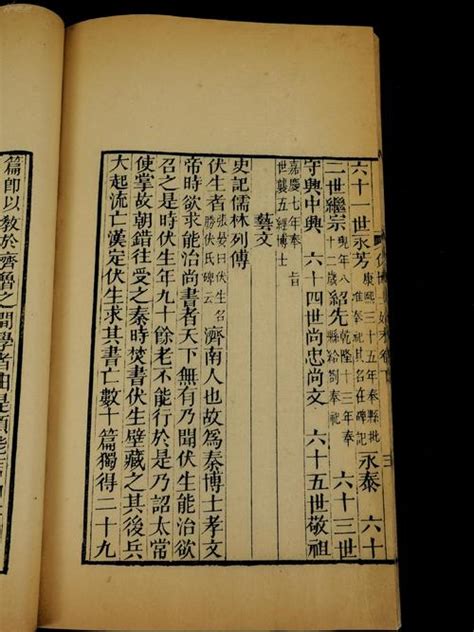 六十一世永芳康熙三十五年奉縣批准奉祀其名在碑記永泰 六十
二世繼宗現年八十二歲紹先乾隆十三年奉縣給劄奉祀 六十三世
守興中興 六十四世尚忠尚文 六十五世敬祖
嘉慶七年奉旨世襲五經博士
藝文
史記儒林列傳
伏生者張晏曰伏生名勝伏氏碑云濟南人也故爲秦博士孝文
帝時欲求能治尚書者天下無有乃聞伏生能治欲
召之是時伏生年九十餘老不能行於是乃詔太常
使掌故朝錯往受之秦時焚書伏生壁藏之其後兵
大起流亡漢定伏生求其書亡數十篇獨得二十九
篇卽以教於齊魯之間學者由是頗能